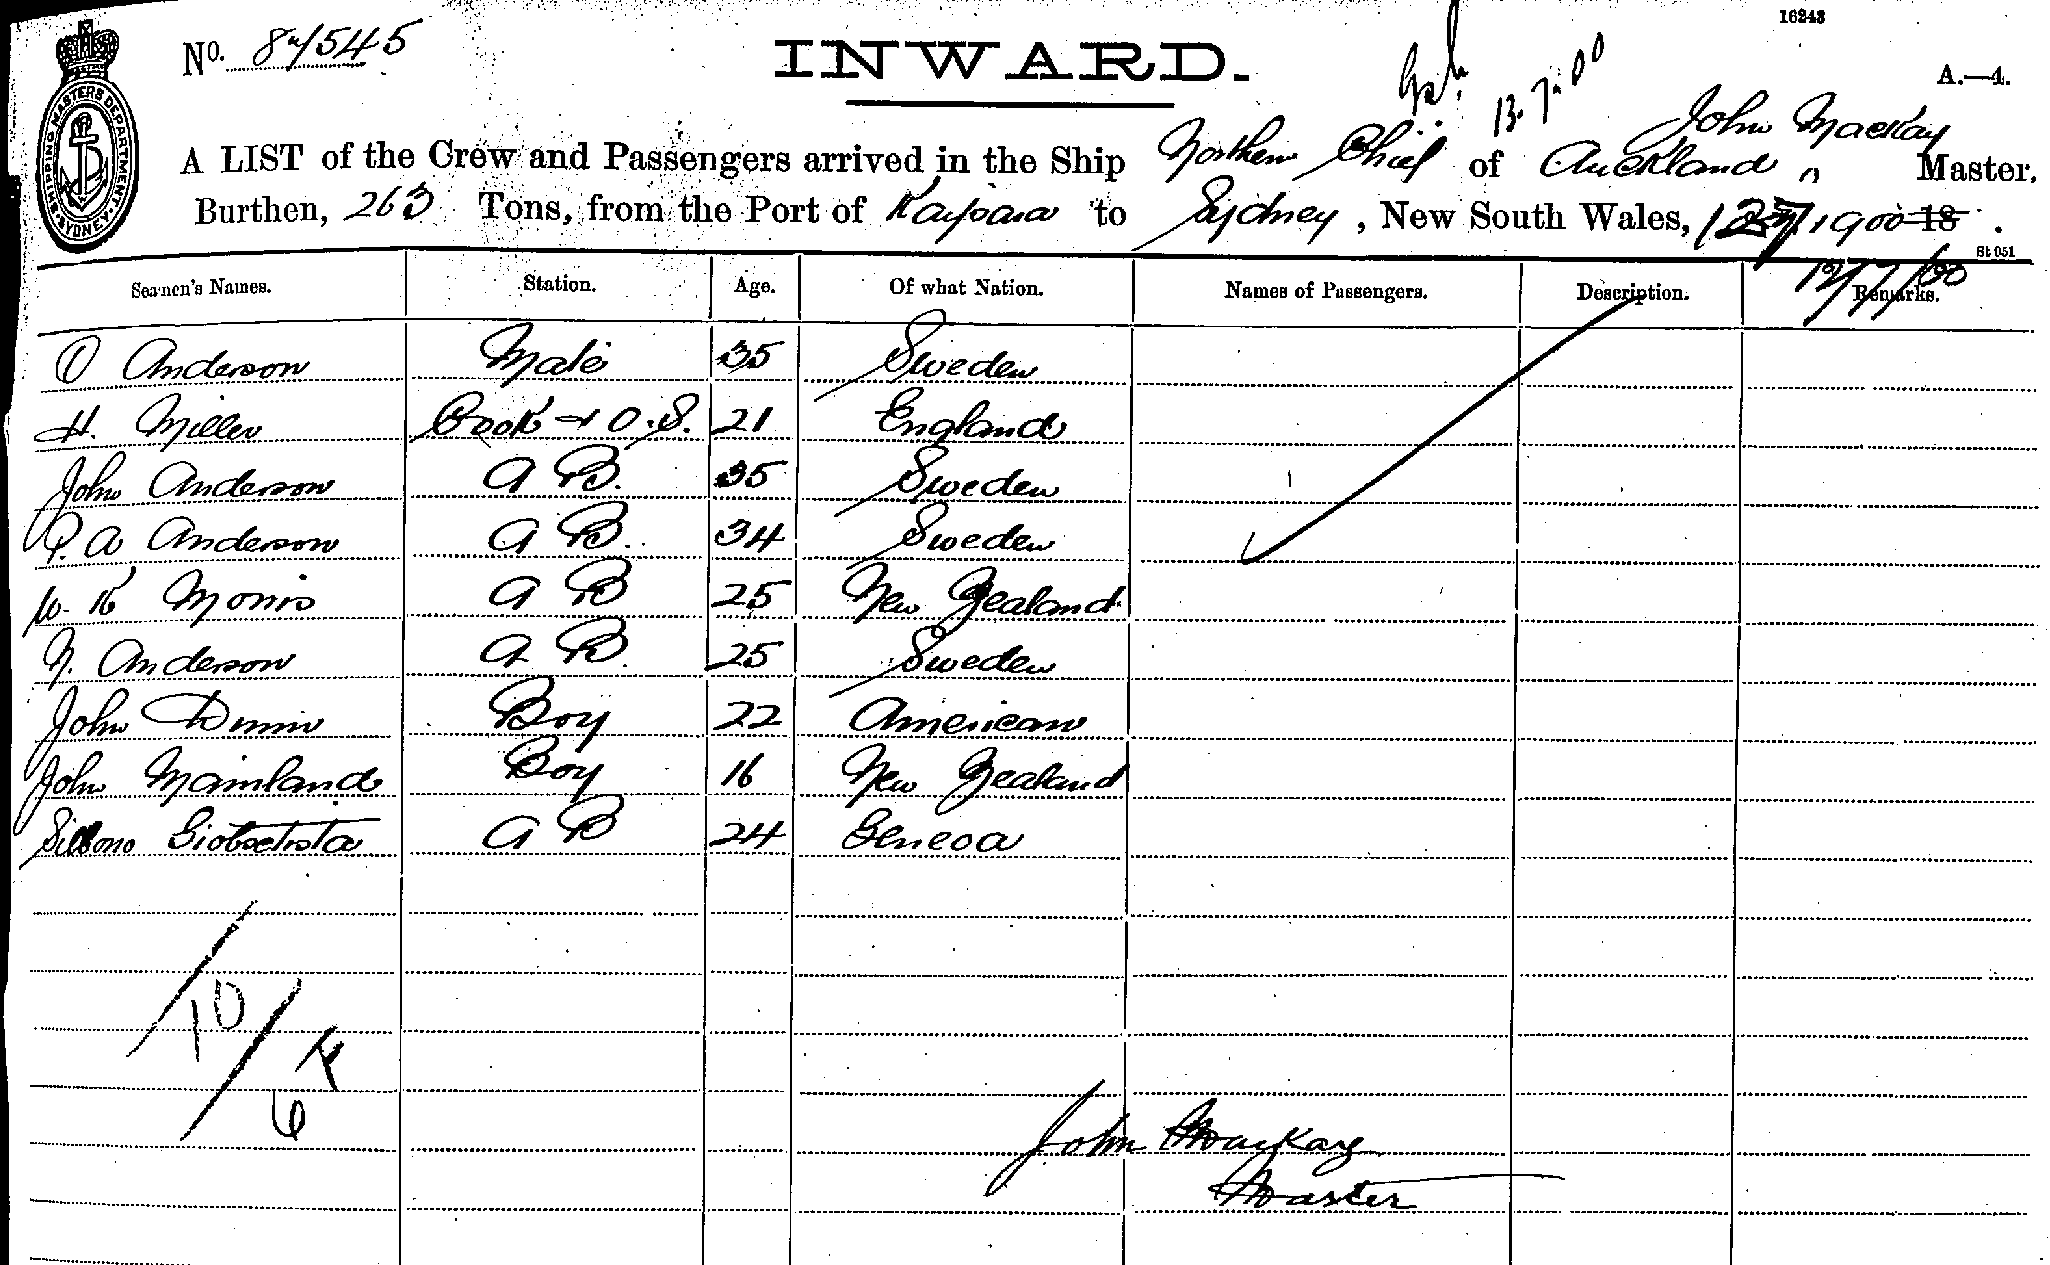 16243
No. 84545
INWARD.
13.7.00
A.—4.
John Mackay
A LIST of the Crew and Passengers arrived in the Ship Northern Chief of Auckland, Master.
Burthen, 263 Tons, from the Port of Kaipara to Sydney, New South Wales, 12 7 1900 18 .
St 051
12/7/00
Seamen's Names. Station. Age. Of what Nation. Names of Passengers. Description. Remarks.
O Anderson Mate 35 Sweden
H. Miller Cook + O.S. 21 England
John Anderson A B. 35 Sweden
P. A Anderson A B. 34 Sweden
W. K Morris A B 25 New Zealand
N. Anderson A B. 25 Sweden
John Dunin Boy 22 American
John Mainland Boy 16 New Zealand
Giobsetista A B 24 Geneoa
10
6
John Mackay
Master
SHIPPING MASTERS DEPARTMENT SYDNEY